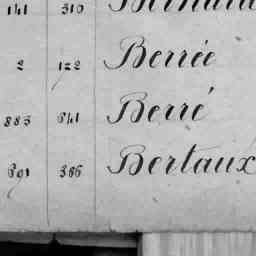 141 310 Bernard
2 122 Berrée
883 641 Berré
691 386 Bertaux